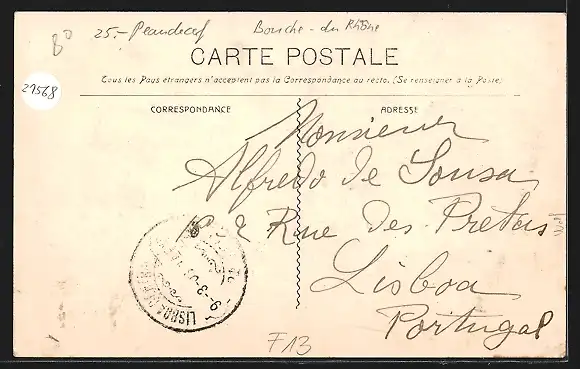 25.- Bouche-du Rhône
CARTE POSTALE
Tous les Pays étrangers n'acceptent pas la Correspondance au recto. (Se renseigner à la Poste)
21568
CORRESPONDANCE
ADRESSE
Monsieur
Alfredo de Sousa
Rue des Pretas
Lisboa
Portugal
LISBOA
9-3-
F13